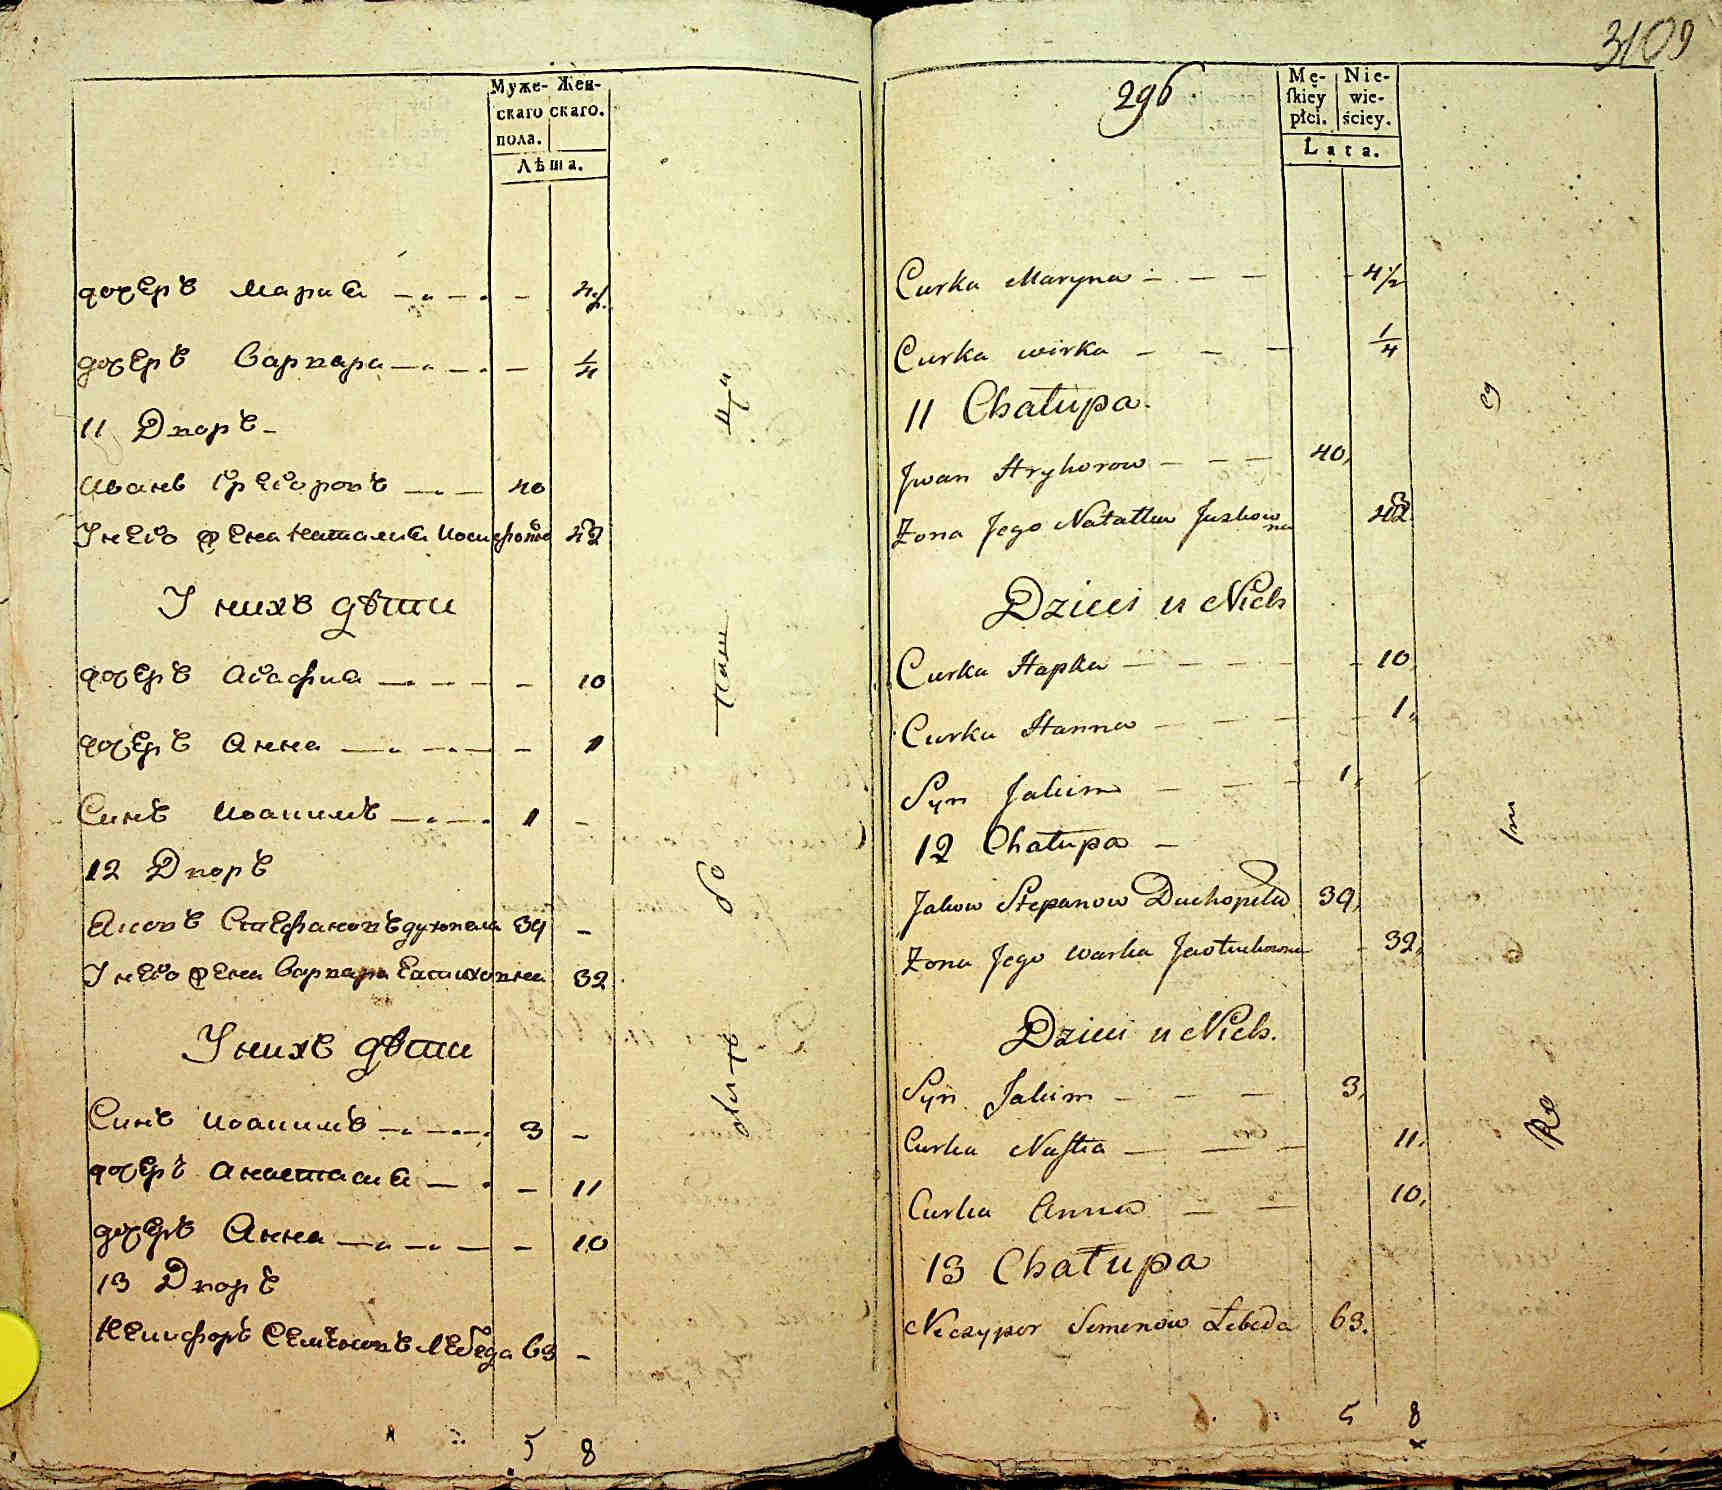 Муже- Жен-
скаго скаго.
пола.
Лѣта.
дочеръ Мариа 4½
дочеръ Варвара ¼
11 Дворъ
Иванъ Григоровъ 40
У него жена Наталиа Иосифовна 42
У нихъ дѣти
дочеръ Агафиа 10
дочеръ Анна 1
Синъ Иоакимъ 1
12 Дворъ
Яковъ Стефановъ духопела 39
У него жена Варвара Евтиховна 32
У нихъ дѣти
Синъ Иоакимъ 3
дочеръ Анастасиа 11
дочеръ Анна 10
13 Дворъ
Никифоръ Семеновъ Лебеда 63
5 8
3109
296
Mę- Nie-
skiey wie-
płci. ściey.
Lata.
Curka Maryna 4½
Curka wirka ¼
11 Chałupa.
Jwan Hryhorow 40
Zona Jego Natalka Juzkowna 42
Dzieci u Nich
Curka Hapka 10
Curka Hanna 1
Syn Jakim 1
12 Chałupa
Jakow Stepanow Duchopela 39
Zona Jego warka Jawtuchowna 32
Dzieci u Nich.
Syn Jakim 3
Curka Nastia 11
Curka Anna 10
13 Chałupa
Neczypor Semenow Lebeda 63.
5 8